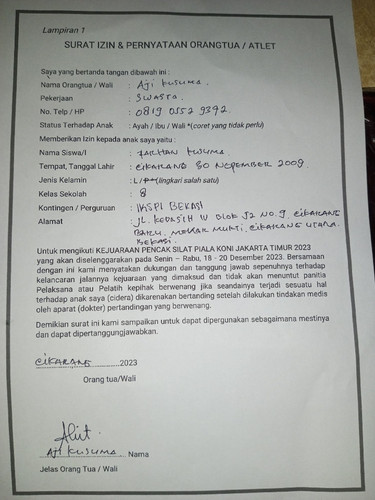 Lampiran 1
SURAT IZIN & PERNYATAAN ORANGTUA / ATLET
Saya yang bertanda tangan dibawah ini :
Nama Orangtua / Wali : Aji Kusuma.
Pekerjaan : SWASTA.
No. Telp / HP : 0819 0552 9392.
Status Terhadap Anak : Ayah / Ibu / Wali *(coret yang tidak perlu)
Memberikan Izin kepada anak saya yaitu :
Nama Siswa/I : FARHAN KUSUMA.
Tempat, Tanggal Lahir : CIKARANG 30 NOPEMBER 2009
Jenis Kelamin : L/P*(lingkari salah satu)
Kelas Sekolah : 8
Kontingen / Perguruan : IKSPI BEKASI
Alamat : JL. KERASIH IV BLOK J2 NO.9. CIKARANG
BARU, MEKAR MUKTI, CIKARANG UTARA.
BEKASI.
Untuk mengikuti KEJUARAAN PENCAK SILAT PIALA KONI JAKARTA TIMUR 2023
yang akan diselenggarakan pada Senin – Rabu, 18 - 20 Desember 2023. Bersamaan
dengan ini kami menyatakan dukungan dan tanggung jawab sepenuhnya terhadap
kelancaran jalannya kejuaraan yang dimaksud dan tidak akan menuntut panitia
Pelaksana atau Pelatih kepihak berwenang jika seandainya terjadi sesuatu hal
terhadap anak saya (cidera) dikarenakan bertanding setelah dilakukan tindakan medis
oleh aparat (dokter) pertandingan yang berwenang.
Demikian surat ini kami sampaikan untuk dapat dipergunakan sebagaimana mestinya
dan dapat dipertanggungjawabkan.
CIKARANG.............2023
Orang tua/Wali
AJI KUSUMA. Nama
Jelas Orang Tua / Wali